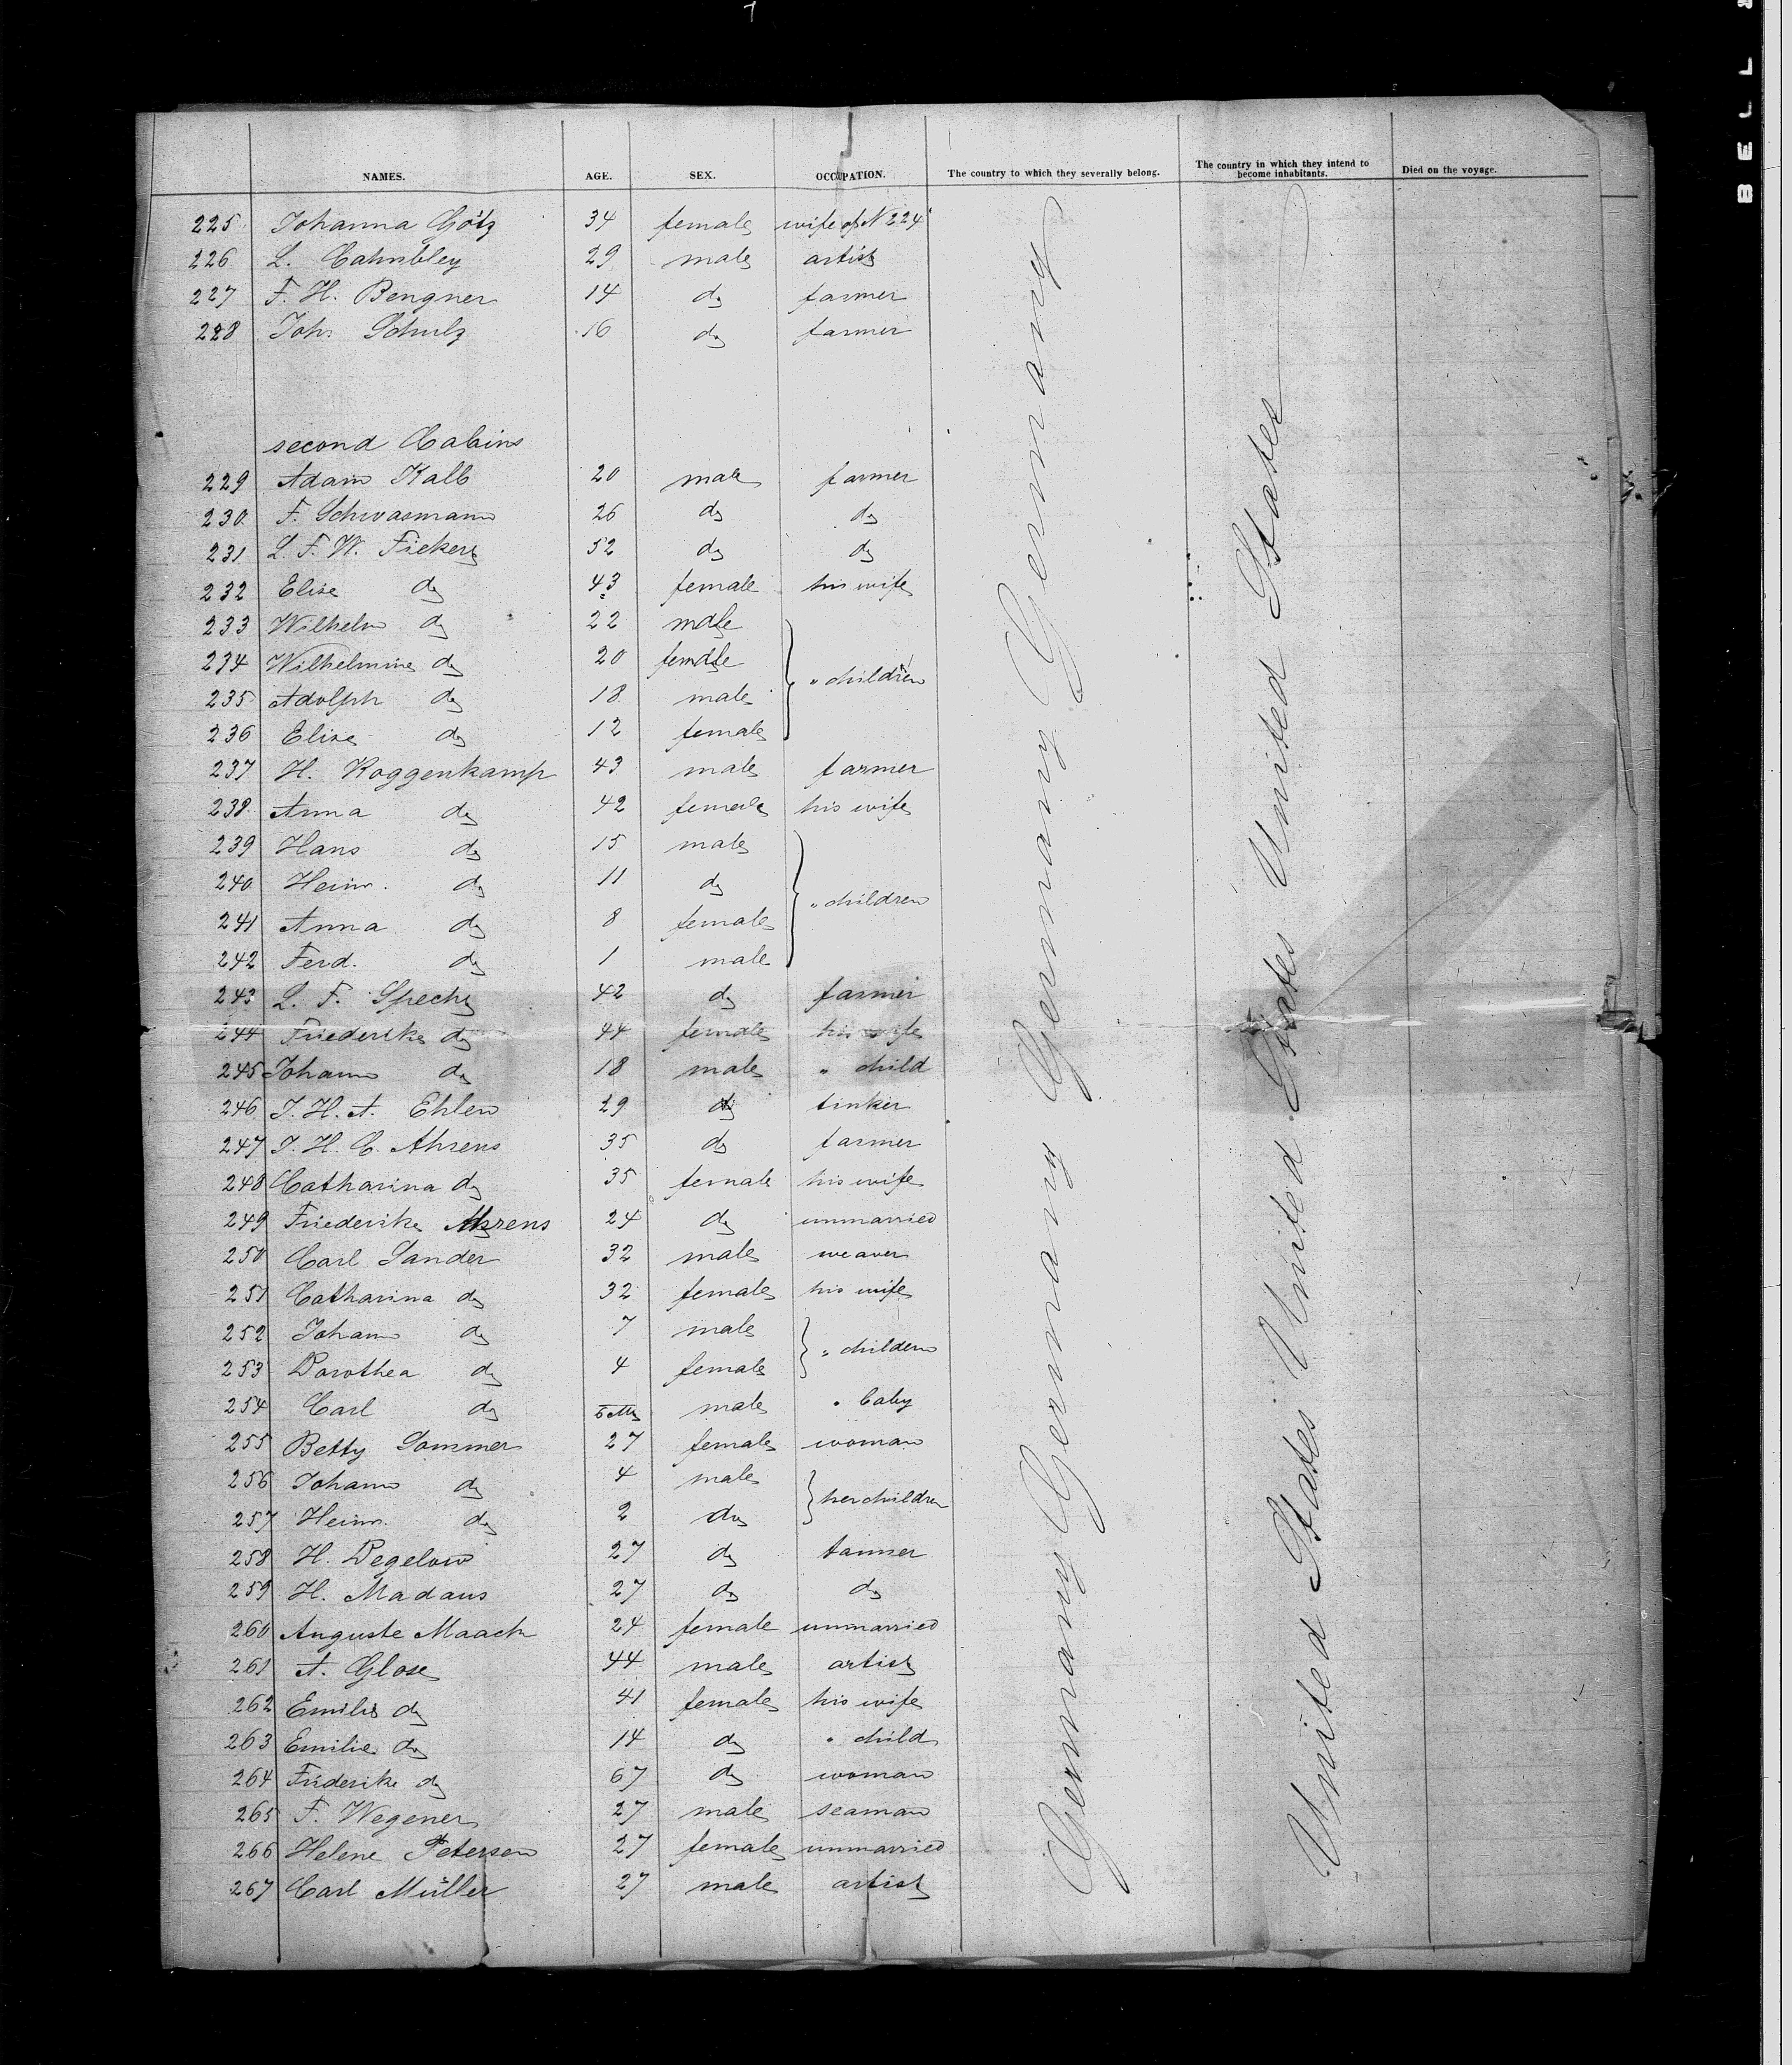 7
BELL &
NAMES. AGE. SEX. OCCUPATION. The country to which they severally belong. The country in which they intend to become inhabitants. Died on the voyage.
225 Johanna Götz 34 female wife of N 224
226 L. Cahnbley 29 male artist
227 F. H. Bengner 14 do farmer
228 Joh. Schulz 16 do farmer
second Cabins
229 Adam Kalb 20 male farmer
230 F. Schwasmann 26 do do
231 L. F. W. Fickers 52 do do
232 Elise do 43 female his wife
233 Wilhelm do 22 male
234 Wilhelmine do 20 female " children
235 Adolph do 18 male
236 Elise do 12 female
237 H. Roggenkamp 43 male farmer
238 Anna do 42 female his wife
239 Hans do 15 male
240 Heinr. do 11 do " children
241 Anna do 8 female
242 Ferd. do 1 male
243 L. F. Specht 42 do farmer
244 Friederike do 44 female his wife
245 Johann do 18 male " child
246 J. H. A. Ehlen 29 do tinker
247 J. H. C. Ahrens 35 do farmer
248 Catharina do 35 female his wife
249 Friederike Ahrens 24 do unmarried
250 Carl Sander 32 male weaver
251 Catharina do 32 female his wife
252 Johann do 7 male " children
253 Dorothea do 4 female
254 Carl do male " baby
255 Betty Sommer 27 female woman
256 Johann do 4 male her children
257 Heinr. do 2 do
258 H. Degelow 27 do farmer
259 H. Madaus 27 do do
260 Auguste Maack 24 female unmarried
261 A. Glose 44 male artist
262 Emilie do 41 female his wife
263 Emilie do 14 do " child
264 Friderike do 67 do woman
265 F. Wegener 27 male seaman
266 Helene Petersen 27 female unmarried
267 Carl Müller 27 male artist
Germany Germany Germany Germany
United States United States United States